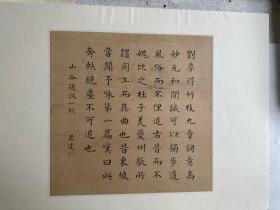 劉夢得竹枝九章詞意高
妙元和間誠可以獨步道
風俗而不俚追古昔而不
媿比之杜子美夔州歌所
謂同工而異曲也昔東坡
嘗聞予咏第一篇嘆曰此
奔軼絕塵不可追也
山谷題跋一則